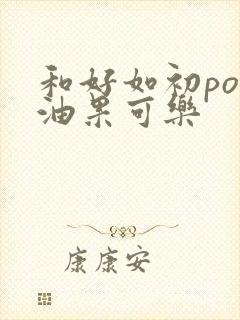 和好如初po
油果可樂
康康安